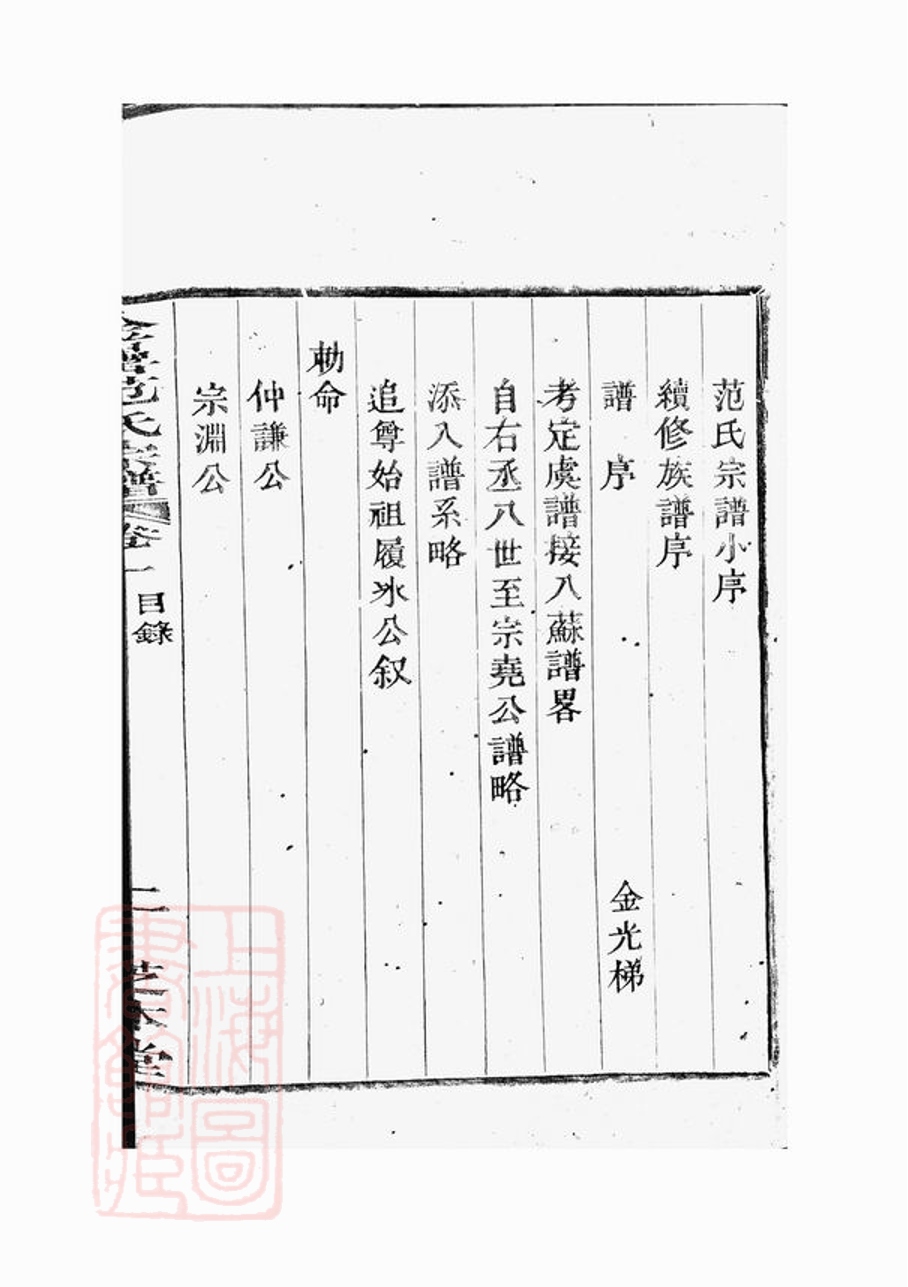 范氏宗譜小序
續修族譜序
譜 序 金光梯
考定虞譜接入蘇譜畧
自右丞八世至宗堯公譜略
添入譜系略
追尊始祖履氷公叙
勅命
仲謙公
宗淵公
范氏宗譜 卷一 目錄 二 堂
上海圖書館藏